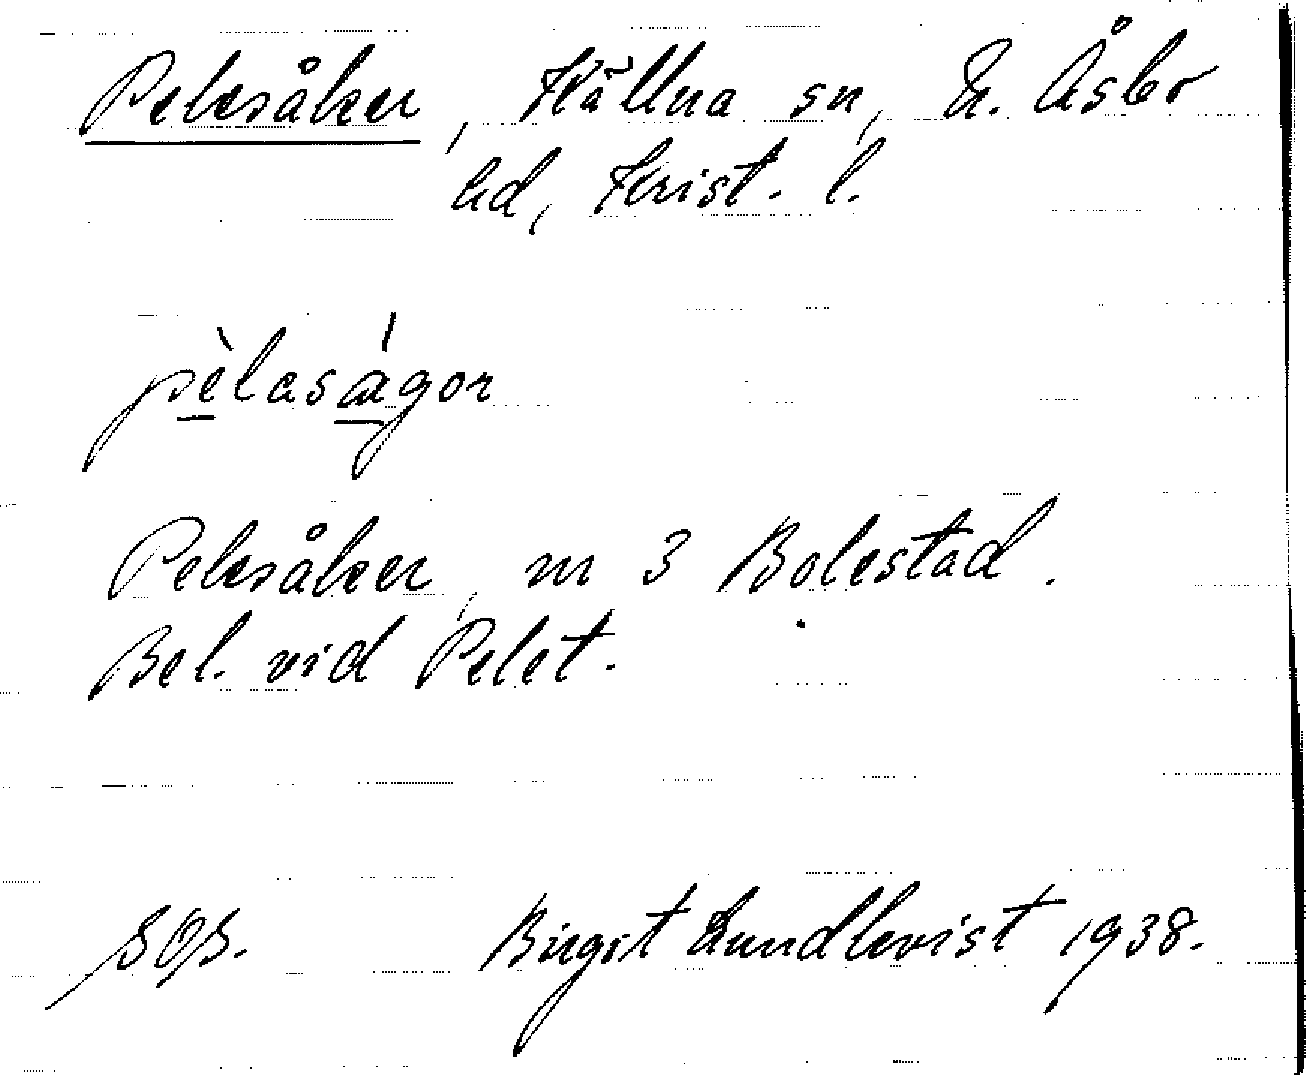 Pelesåker, Källna sn, N. Åsbo
hd, Krist. l.
pèlasǻgor
Pelesåker, nr 3 Bolestad.
Bel. vid Pelet.
SOS. Birgit Lundkvist 1938.